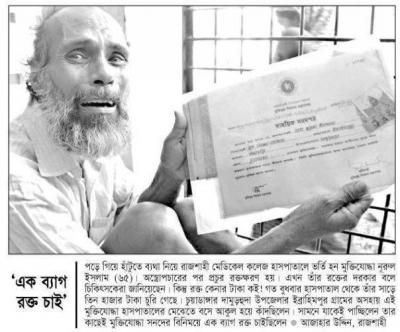 সাময়িক সনদপত্র
'এক ব্যাগ
রক্ত চাই'
পড়ে গিয়ে হাঁটুতে ব্যথা নিয়ে রাজশাহী মেডিকেল কলেজ হাসপাতালে ভর্তি হন মুক্তিযোদ্ধা নূরুল
ইসলাম (৬৫)। অস্ত্রোপচারের পর প্রচুর রক্তক্ষরণ হয়। এখন তাঁর রক্তের দরকার বলে
চিকিৎসকেরা জানিয়েছেন। কিন্তু রক্ত কেনার টাকা কই! গত বুধবার হাসপাতাল থেকে তাঁর সাড়ে
তিন হাজার টাকা চুরি গেছে। চুয়াডাঙ্গার দামুড়হুদা উপজেলার ইব্রাহিমপুর গ্রামের অসহায় এই
মুক্তিযোদ্ধা হাসপাতালের মেঝেতে বসে আকুল হয়ে কাঁদছিলেন। সামনে যাকেই পাচ্ছিলেন তার
কাছেই মুক্তিযোদ্ধা সনদের বিনিময়ে এক ব্যাগ রক্ত চাইছিলেন ● আজাহার উদ্দিন, রাজশাহী